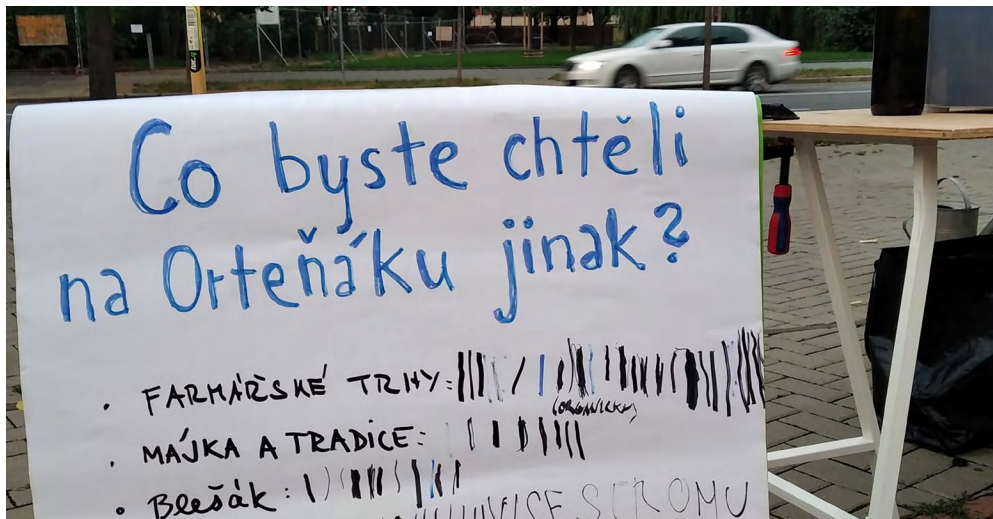 Co byste chtěli
na Orteňáku jinak?
• FARMÁŘSKÉ TRHY:
(ORGANICKY)
• MÁJKA A TRADICE:
• Blešák:
VÍCE STROMŮ